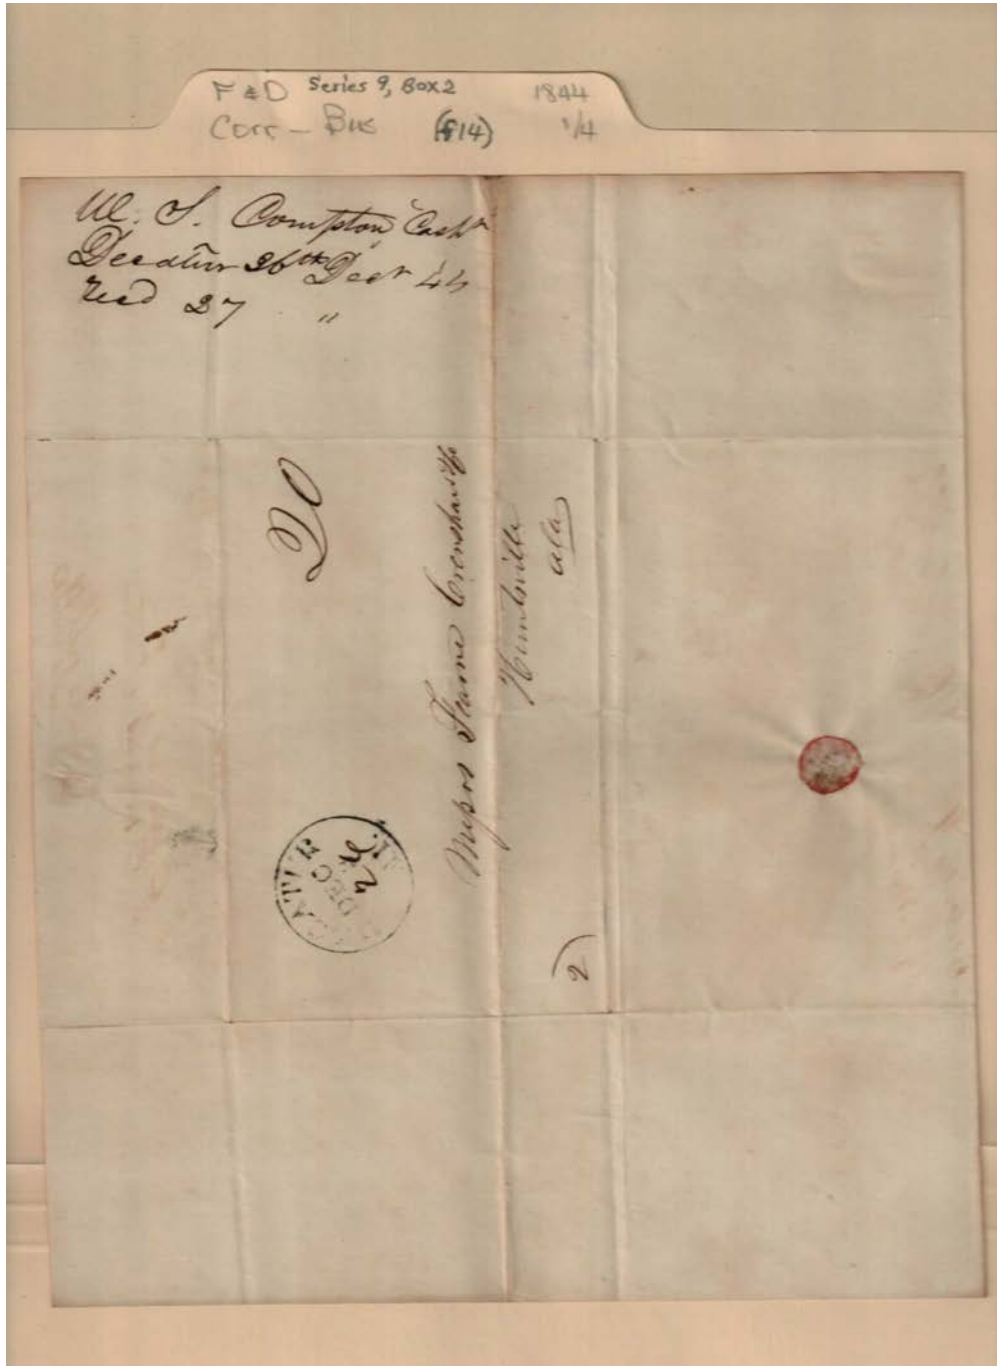 F & D Series 9, Box 2 1844
Corr - Bus (f14) 1/4
W. S. Compton Cashr
Decatur 26th Decr 44
recd 27 "
20
Messrs Fearne Crenshaw & Co
Huntsville
ala
DECATUR
DEC
26
AL.
2